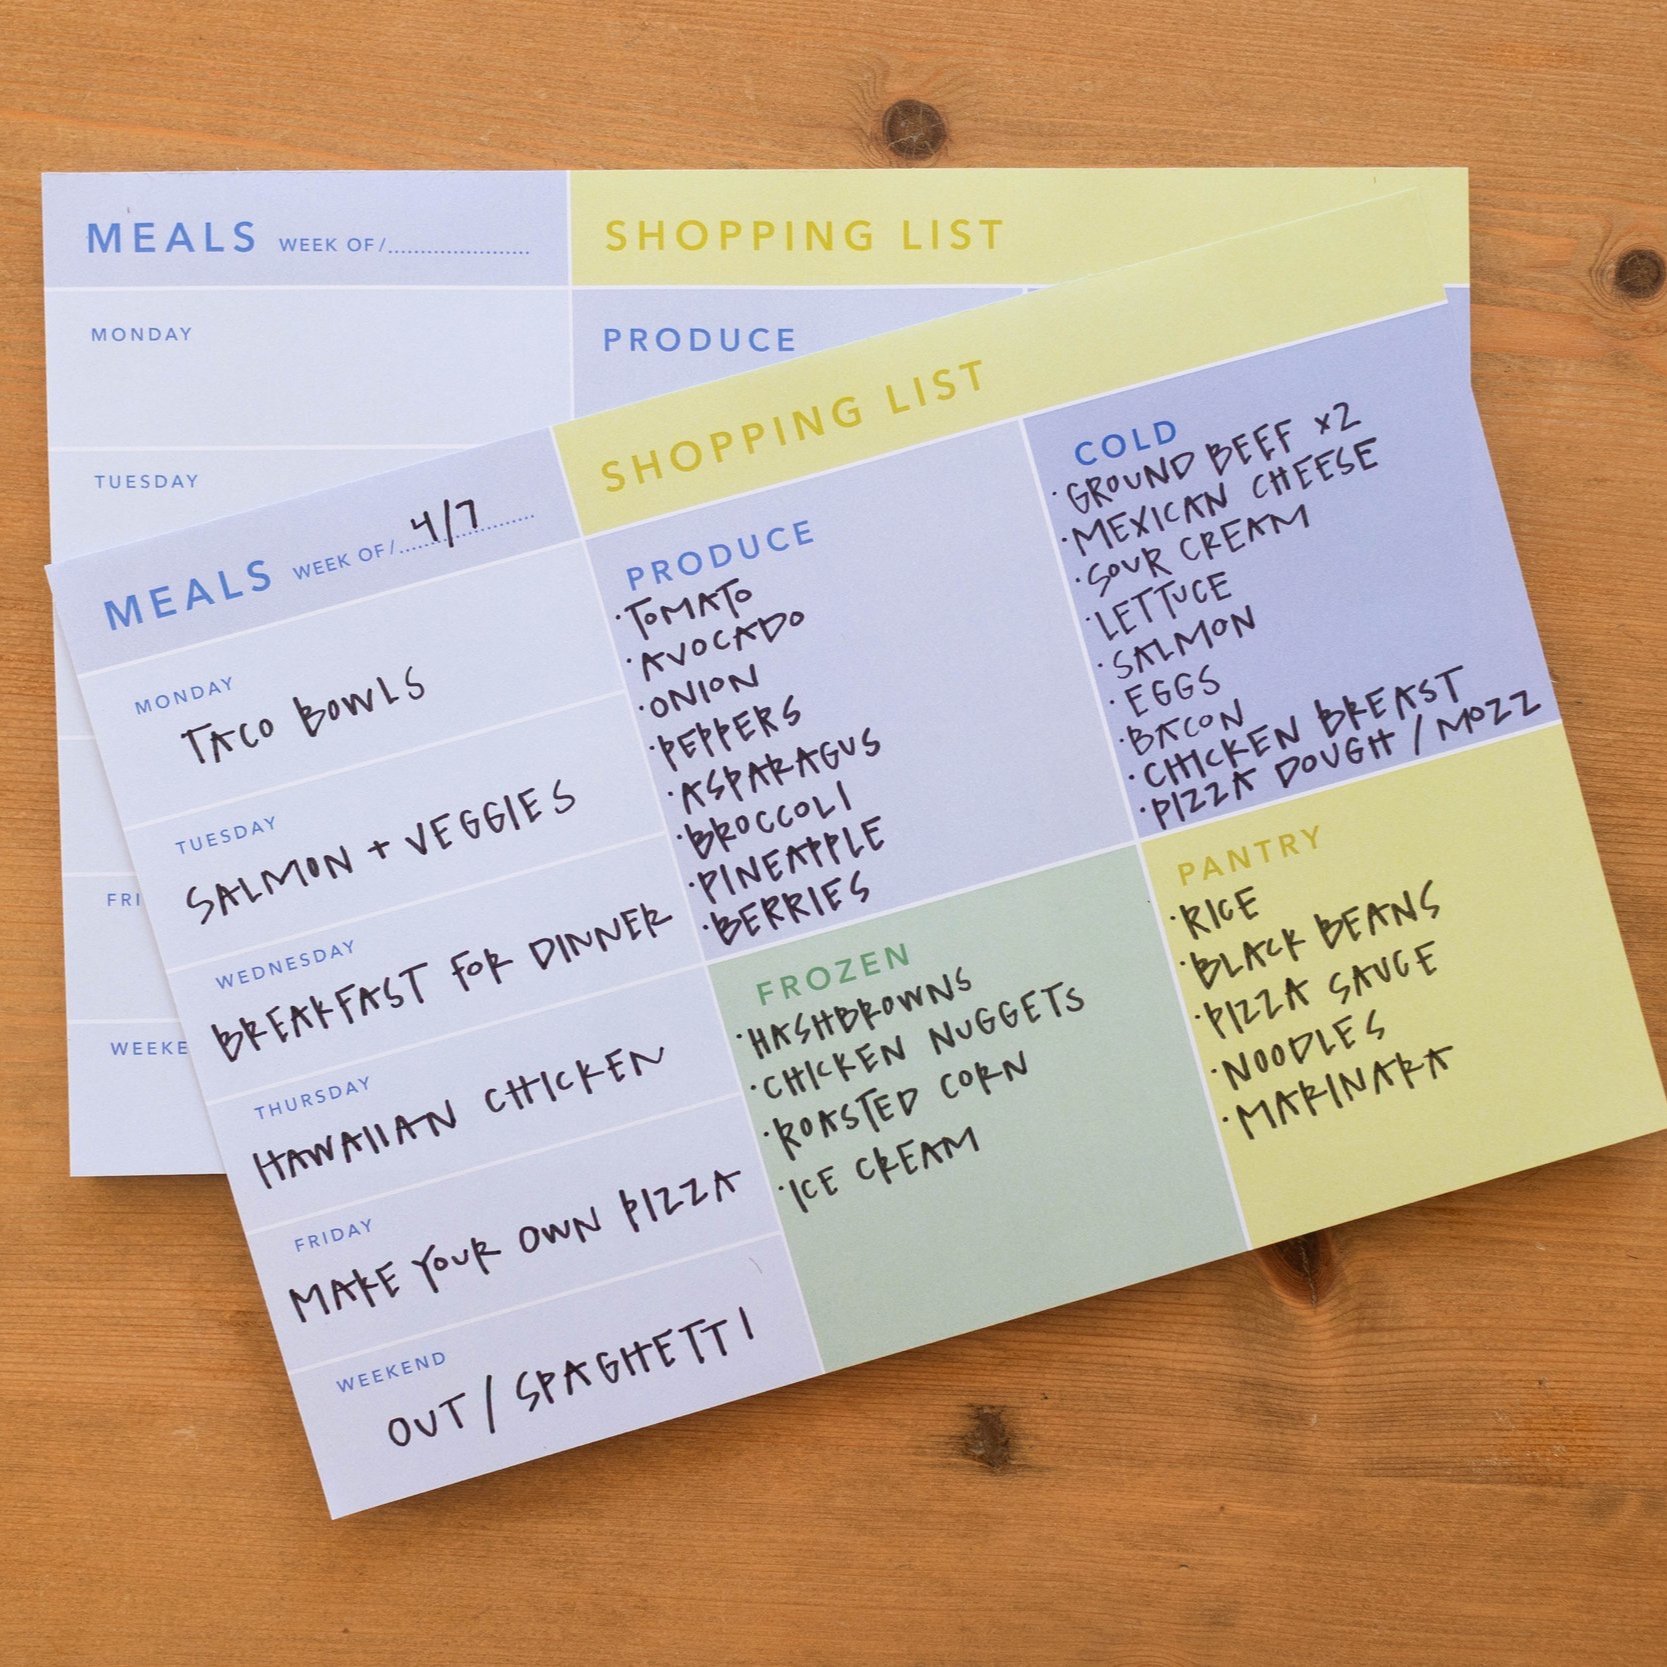 MEALS WEEK OF/
SHOPPING LIST
MONDAY
PRODUCE
TUESDAY
FRI
WEEKE
MEALS WEEK OF/ 4/7
MONDAY
TACO BOWLS
TUESDAY
SALMON + VEGGIES
WEDNESDAY
BREAKFAST FOR DINNER
THURSDAY
HAWAIIAN CHICKEN
FRIDAY
MAKE YOUR OWN PIZZA
WEEKEND
OUT / SPAGHETTI
SHOPPING LIST
PRODUCE
·TOMATO
·AVOCADO
·ONION
·PEPPERS
·ASPARAGUS
·BROCCOLI
·PINEAPPLE
·BERRIES
COLD
·GROUND BEEF x2
·MEXICAN CHEESE
·SOUR CREAM
·LETTUCE
·SALMON
·EGGS
·BACON
·CHICKEN BREAST
·PIZZA DOUGH / MOZZ
FROZEN
·HASHBROWNS
·CHICKEN NUGGETS
·ROASTED CORN
·ICE CREAM
PANTRY
·RICE
·BLACK BEANS
·PIZZA SAUCE
·NOODLES
·MARINARA